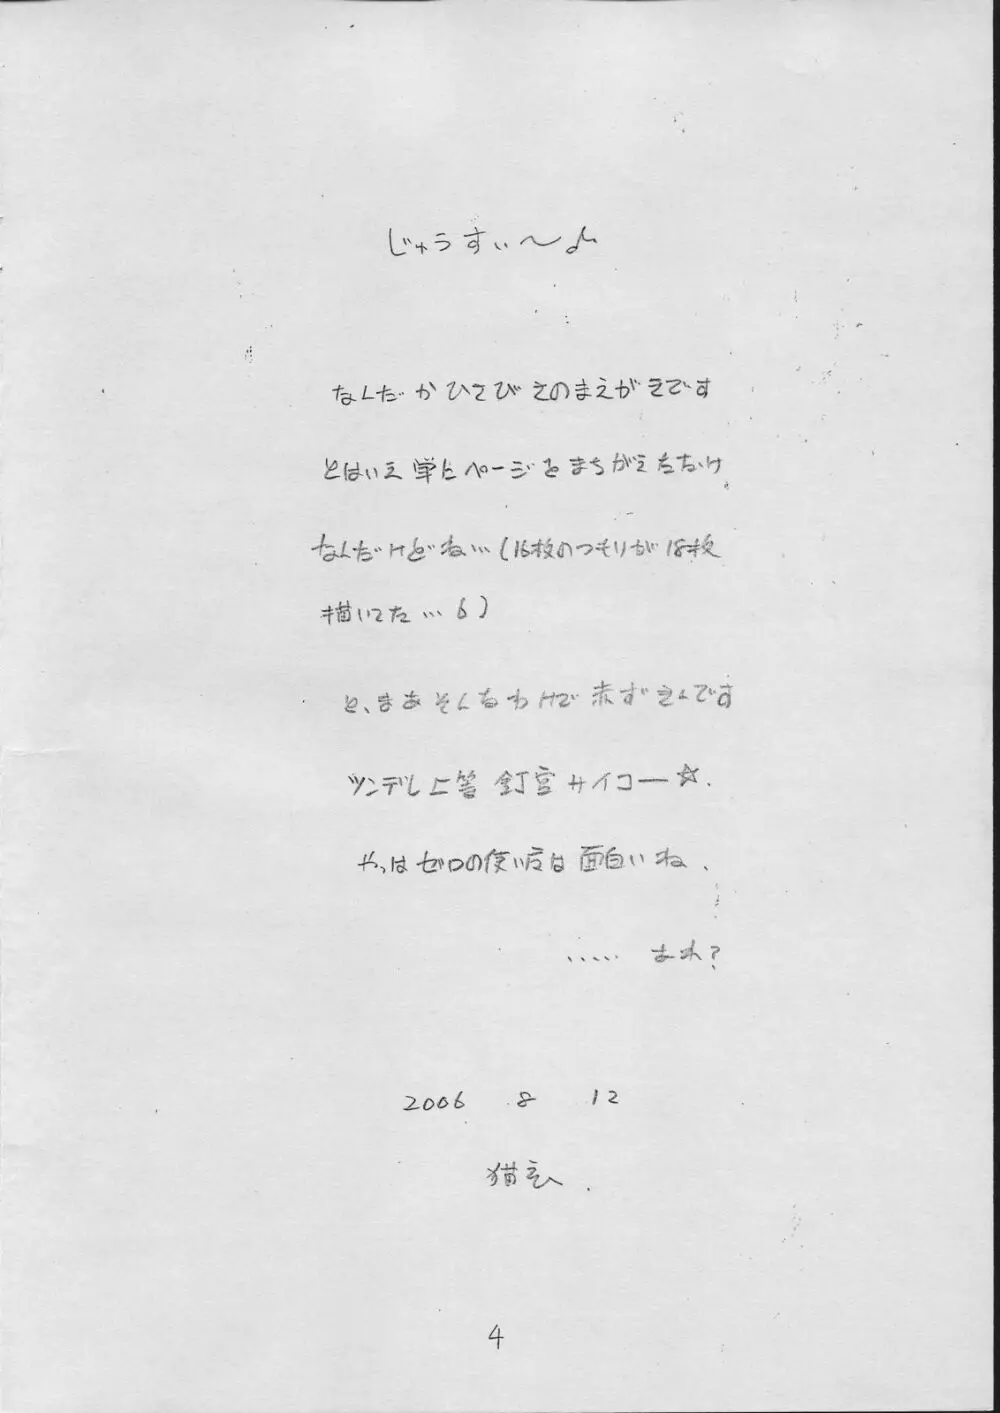 じゅうすぃ〜♪
なんだかひさびさのまえがきです
とはいえ単にページをまちがえただけ
なんだけどね…(16枚のつもりが18枚
描いてた… 6)
と、まあそんなわけで赤ずきんです
ツンデレ上等 釘宮サイコー☆.
やっぱゼロの使い魔は面白いね.
..... あれ?
2006 8 12
猫玄.
4